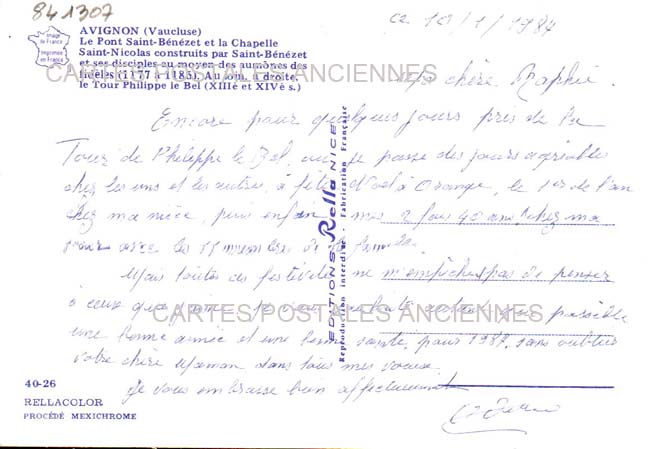 841307
Image de France
Imprimée en France
AVIGNON (Vaucluse)
Le Pont Saint-Bénézet et la Chapelle
Saint-Nicolas construits par Saint-Bénézet
et ses disciples au moyen des aumônes des
fidèles (1177 à 1185). Au loin, à droite,
le Tour Philippe le Bel (XIIIè et XIVè s.)
CARTES POSTALES ANCIENNES
ce 10/1/1984
Ma chère
Encore pour quelques jours près de la
Tour de Philippe le Bel, où je passe des jours agréables
chez les uns et les autres, à fêter Noël à Orange, le 1er de l'an
chez ma nièce, puis enfin mes 2 fois 40 ans chez ma
avec les 11 membres de la famille.
Mais toutes ces festivités ne m'empêchent pas de penser
à ceux que j'aime
une bonne année et une bonne santé, pour 1984, sans oublier
votre chère Maman dans tous mes voeux.
Je vous embrasse bien affectueusement
CARTES POSTALES ANCIENNES
EDITIONS Rella NICE
Reproduction interdite - Fabrication Française
40-26
RELLACOLOR
PROCÉDÉ MEXICHROME